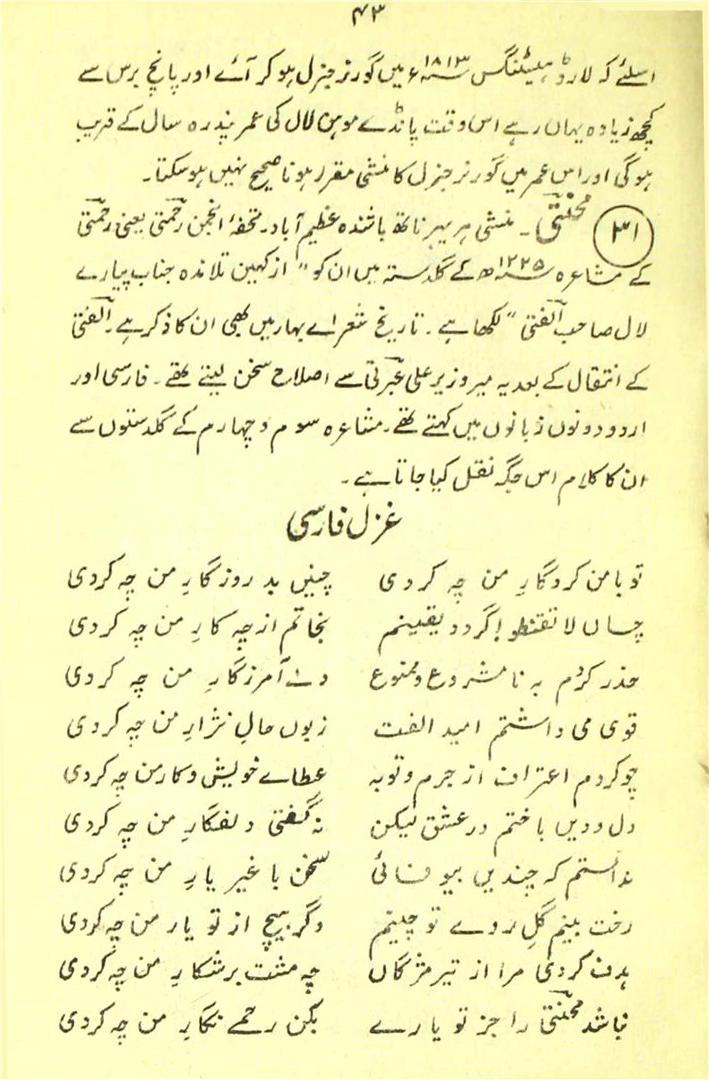 ۴۳
اسلئے کہ لارڈ ہیسٹنگس ۱۸۱۳ء میں گورنر جنرل ہو کر آئے اور پانچ برس سے
کچھ زیادہ یہاں رہے اس وقت پانڈے موہن لال کی عمر پندرہ سال کے قریب
ہوگی اور اس عمر میں گورنر جنرل کا منشی مقرر ہونا صحیح نہیں ہو سکتا۔
(۳۱) محنتی۔ منشی ہر بہر ناتھ باشندہ عظیم آباد۔ تحفۂ انجمن رحمتی یعنی رحمتی
کے مشاعرہ ۱۲۲۵ھ کے گلدستہ میں ان کو "از کہین تلامذہ جناب پیارے
لال صاحب الفتی" لکھا ہے۔ تاریخ شعراے بہار میں بھی ان کا ذکر ہے۔ الفتی
کے انتقال کے بعد یہ میر وزیر علی عبرتی سے اصلاح سخن لیتے تھے۔ فارسی اور
اردو دونوں زبانوں میں کہتے تھے۔ مشاعرہ سوم و چہارم کے گلدستوں سے
ان کا کلام اس جگہ نقل کیا جاتا ہے۔
غزل فارسی
تو با من کردگارِ من چہ کردی چنیں بد روزگارِ من چہ کردی
چساں لا تقنطوا گردد یقینم نجاتم از چہ کارِ من چہ کردی
حذر کردم بہ نا مشروع و ممنوع دلے آمرزگارِ من چہ کردی
قوی می داشتم امید الفت زبوں حالِ نزارِ من چہ کردی
چو کردم اعتراف از جرم و توبہ عطاے خویش و کار من چہ کردی
دل و دیں باختم در عشق لیکن نہ گفتی دلفگارِ من چہ کردی
ندانستم کہ چندیں بیوفائی سخن با غیر یارِ من چہ کردی
رخت بینم گلِ روے تو چینم دگر ہیچ از تو یار من چہ کردی
ہدف کردی مرا از تیر مژگاں چہ مشت بر شکارِ من چہ کردی
نباشد محنتی را جز تو یارے بکن رحمے نگارِ من چہ کردی